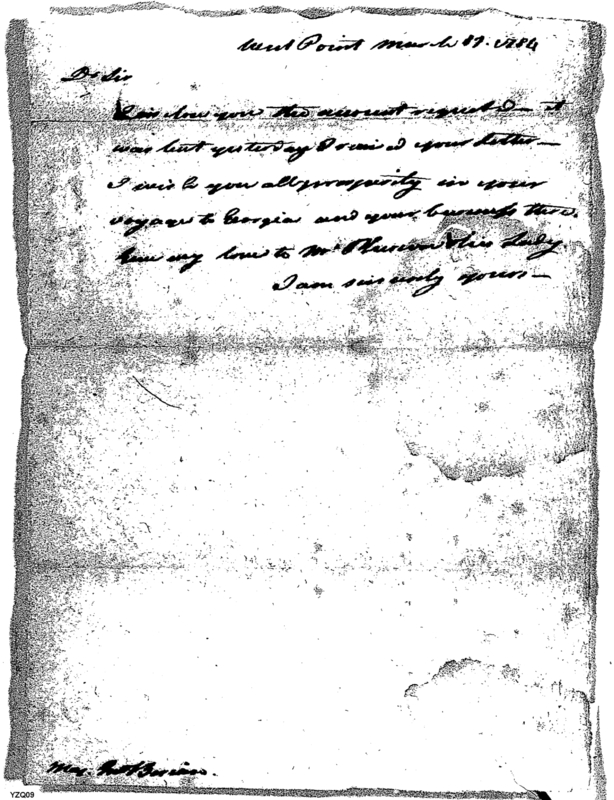 West Point March 19. 1784
Dr Sir
I inclose you the account requested – it
was but yesterday I received your letter –
I wish you all prosperity in your
voyage to Georgia and your business there.
Give my love to Mr & his Lady.
I am sincerely yours –
Maj. Berrien.
YZQ09